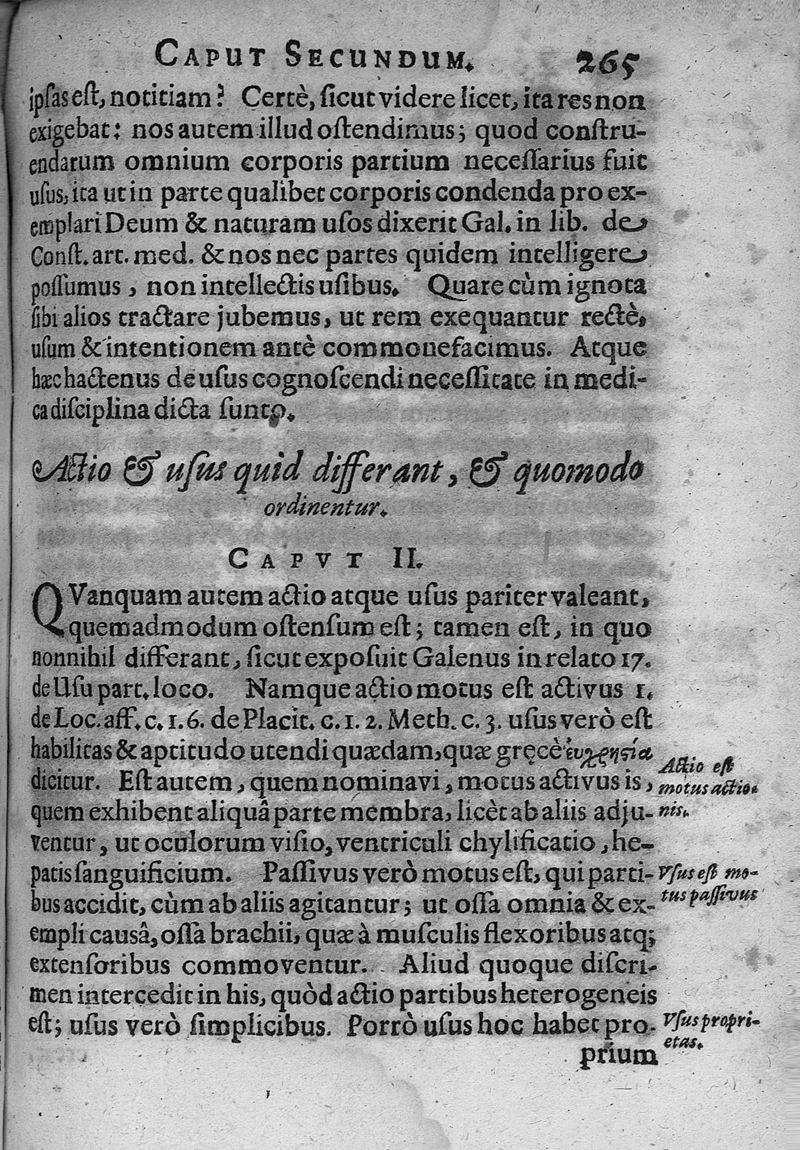 CAPUT SECUNDUM. 265
ipsas est, notitiam? Certè, sicut videre licet, ita res non
exigebat: nos autem illud ostendimus; quod constru-
endarum omnium corporis partium necessarius fuit
usus, ita ut in parte qualibet corporis condenda pro ex-
emplari Deum & naturam usos dixerit Gal. in lib. de
Const. art. med. & nos nec partes quidem intelligere
possumus, non intellectis usibus. Quare cùm ignota
sibi alios tractare jubemus, ut rem exequantur rectè,
usum & intentionem antè commonefacimus. Atque
hæc hactenus de usus cognoscendi necessitate in medi-
ca disciplina dicta sunto.
Actio & usus quid differant, & quomodo
ordinentur.
CAPVT II.
QVanquam autem actio atque usus pariter valeant,
quemadmodum ostensum est; tamen est, in quo
nonnihil differant, sicut exposuit Galenus in relato 17.
de Usu part. loco. Namque actio motus est activus 1.
de Loc. aff. c. 1. 6. de Placit. c. 1. 2. Meth. c. 3. usus verò est
habilitas & aptitudo utendi quædam, quæ gręcè ἐυχρησία
dicitur. Est autem, quem nominavi, motus activus is,
quem exhibent aliquâ parte membra, licèt ab aliis adju-
ventur, ut oculorum visio, ventriculi chylificatio, he-
patis sanguificium. Passivus verò motus est, qui parti-
bus accidit, cùm ab aliis agitantur; ut ossa omnia & ex-
empli causâ, ossa brachii, quæ à musculis flexoribus atq;
extensoribus commoventur. Aliud quoque discri-
men intercedit in his, quòd actio partibus heterogeneis
est; usus verò simplicibus. Porrò usus hoc habet pro-
prium
Actio est
motus actio-
nis.
Vsus est mo-
tus passivus
Vsus propri-
etas.